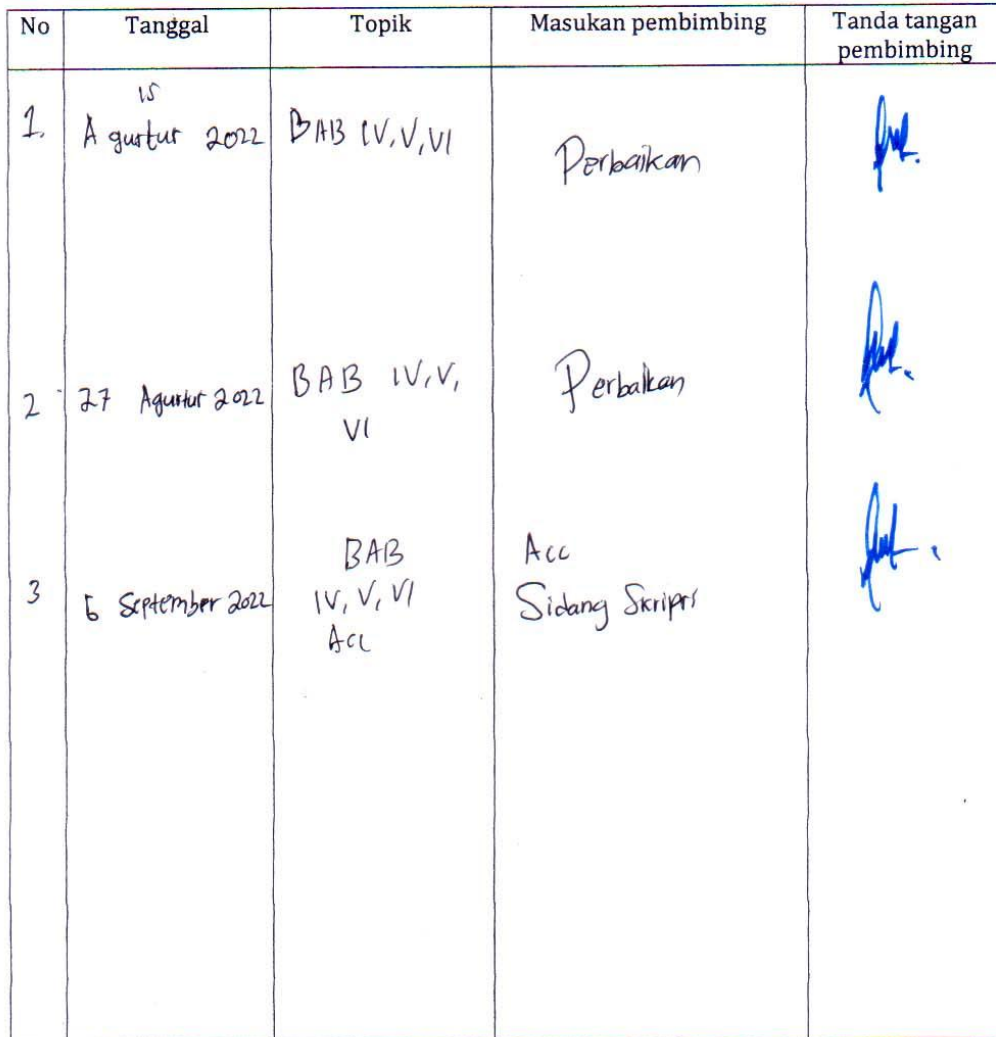 No Tanggal Topik Masukan pembimbing Tanda tangan
pembimbing
15
1. Agustus 2022 BAB IV, V, VI Perbaikan
2 27 Agustus 2022 BAB IV, V, Perbaikan
VI
BAB Acc
3 6 September 2022 IV, V, VI Sidang Skripsi
Acc